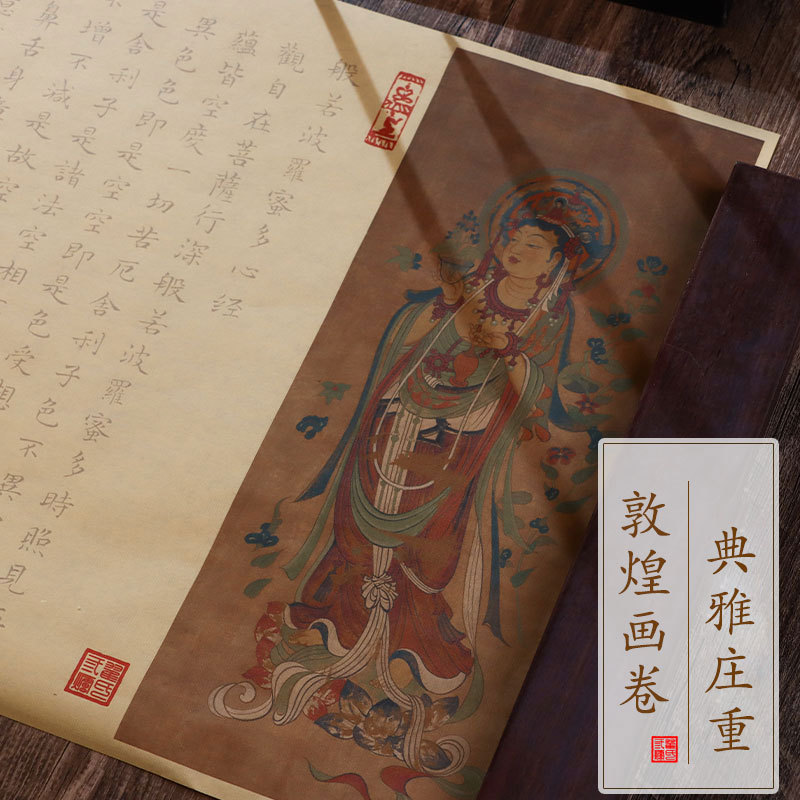 般若波羅蜜多心经
觀自在菩薩行深般若波羅蜜多時照見五
蘊皆空度一切苦厄舍利子色不異
異色色即是空空即是色受想
是舍利子是諸法空相
不增不減是故空
鼻舌身
典雅庄重
敦煌画卷